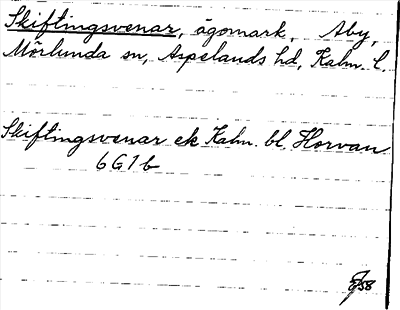 Skiftingsvenar, ägomark, Åby,
Mörlunda sn, Aspelands hd, Kalm. l.
Skiftingsvenar ek Kalm. bl. Horvan
6G1b
58